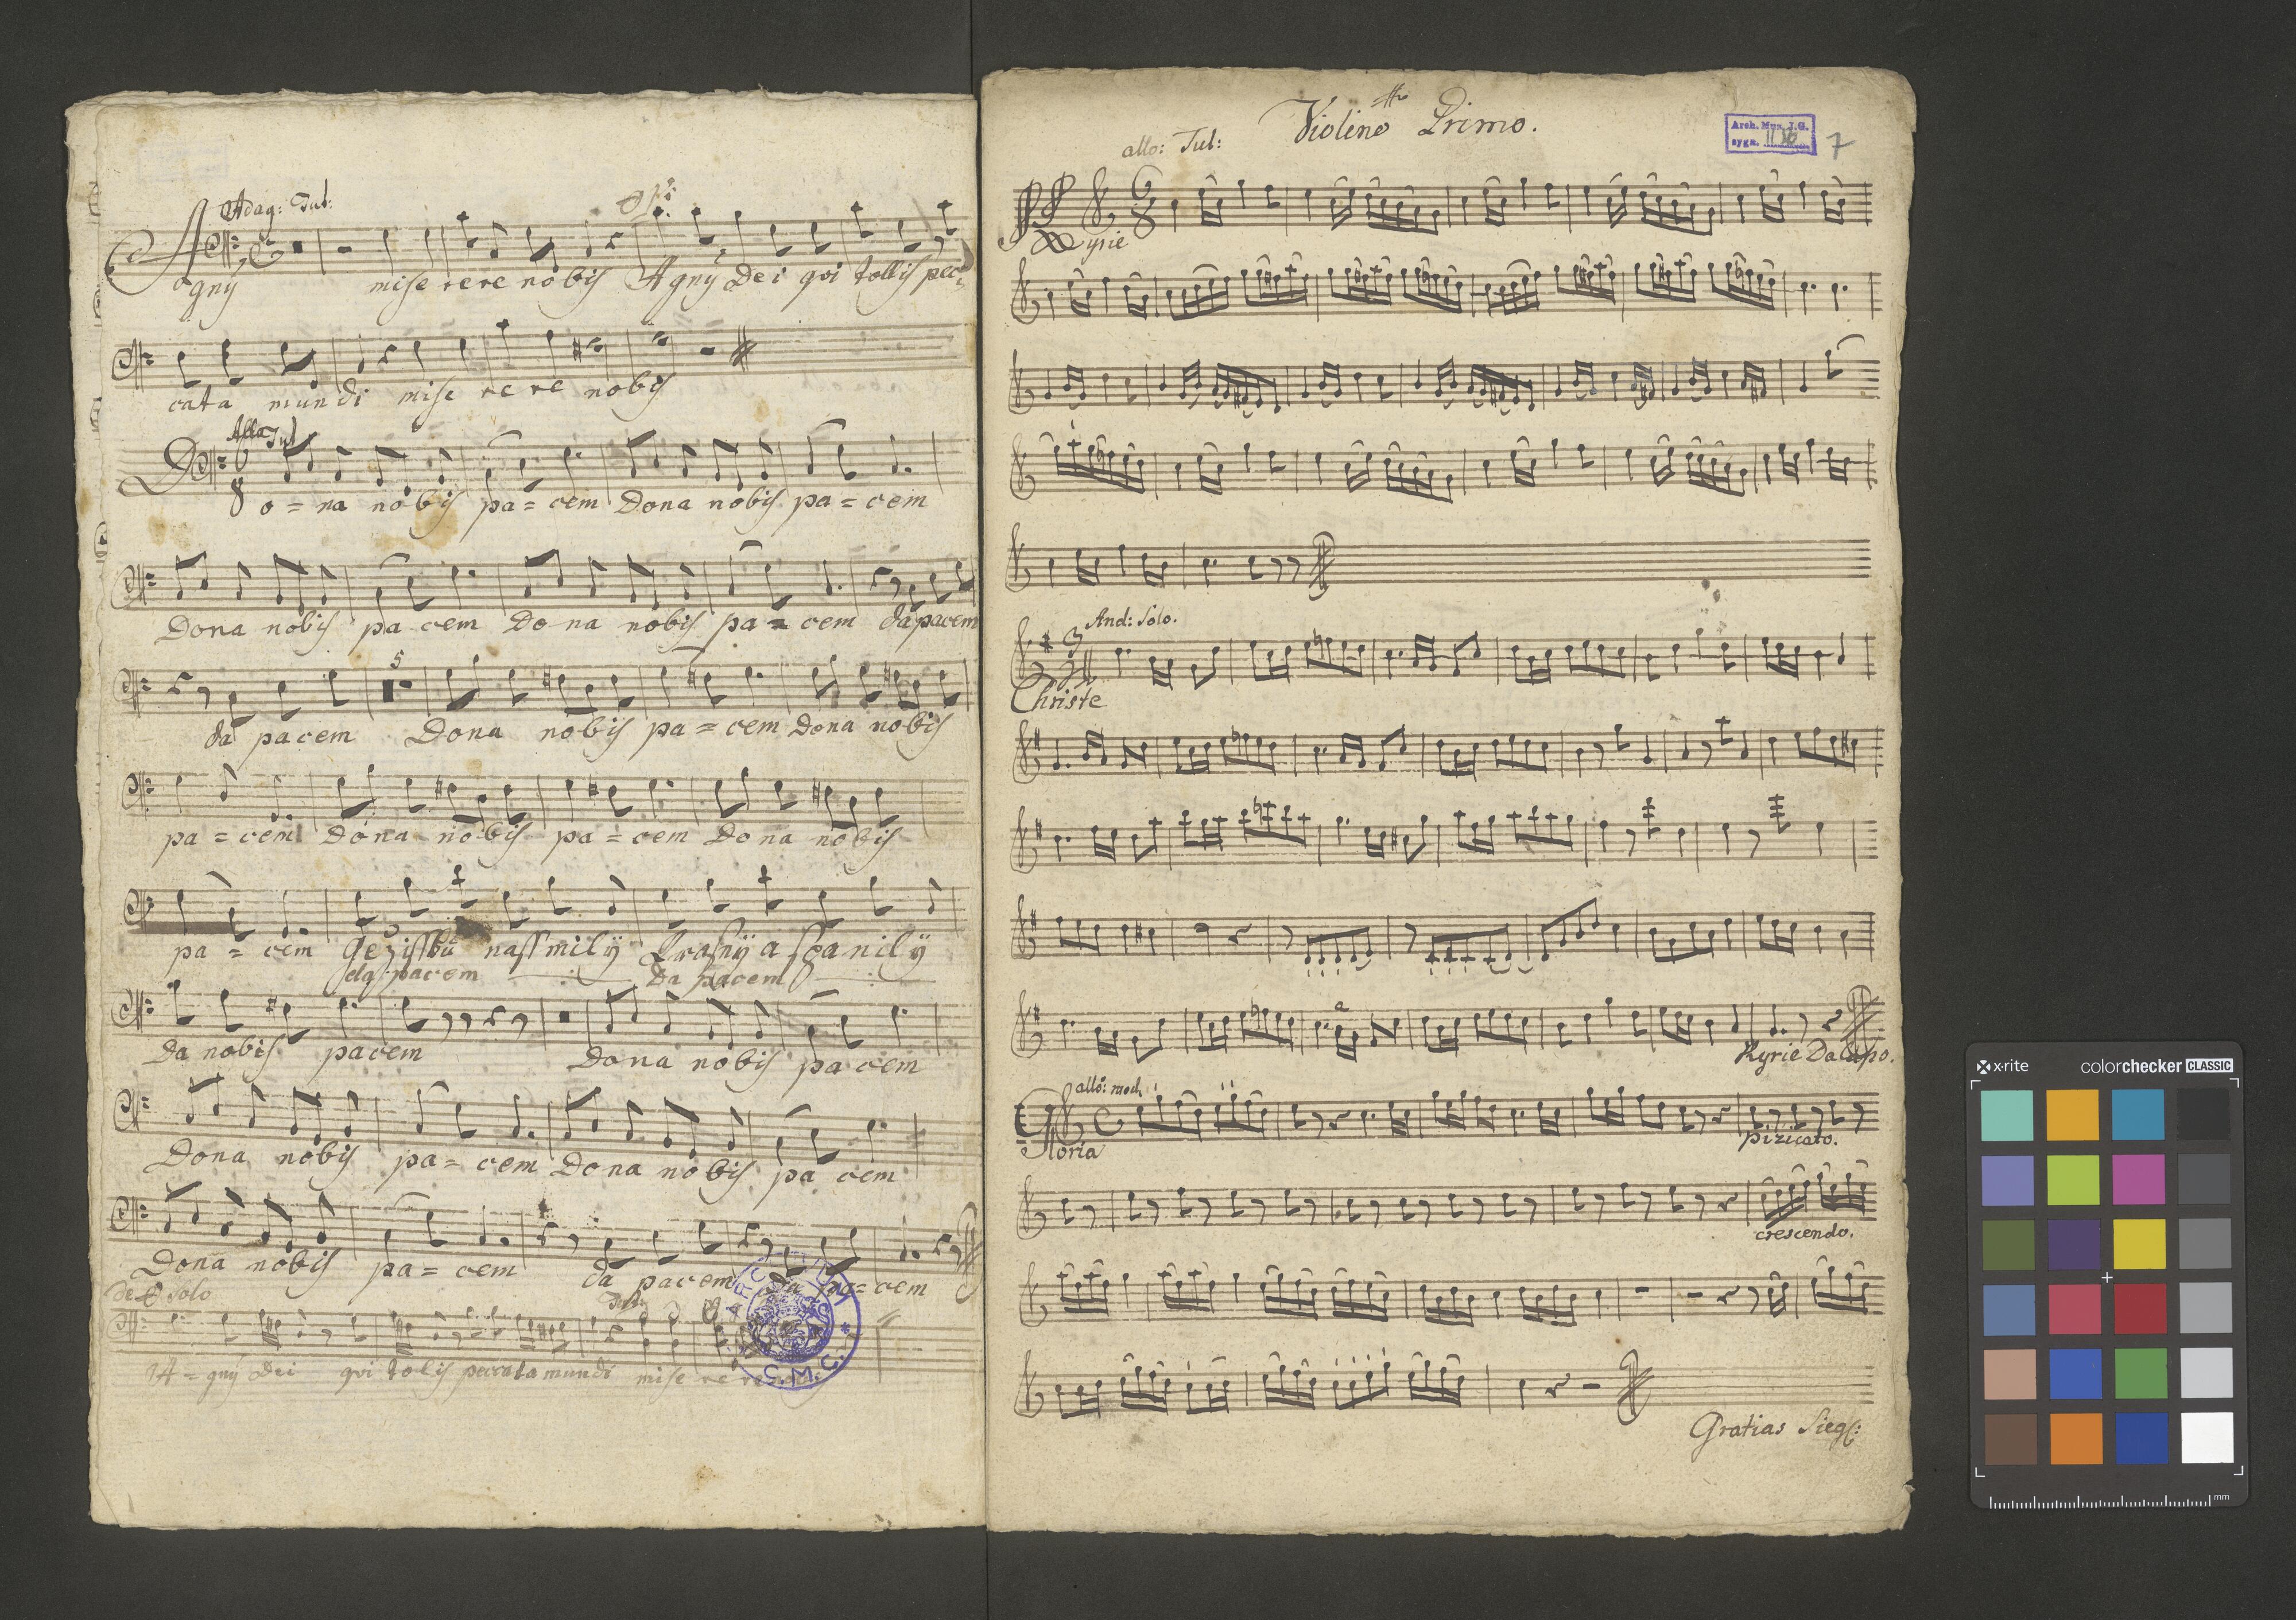 Adag: Tut:
Agnÿ mise rere nobis Agnÿ Dei qvi tollis pec-
cata mundi mise re re nobis
Allo Tut
Do = na nobis pa = cem Dona nobis pa = cem
Dona nobis pa cem Do na nobis pa = cem da pacem
5
da pacem Dona nobis pa = cem Dona nobis
pa = cem Dona nobis pa = cem Do na nobis
pa = cem Gezissku nassmilÿ Krasnÿ a spanilÿ
da pacem Da pacem
Da nobis pacem Dona nobis pa cem
Dona nobis pa = cem Do na nobis pa cem
Dona nobis pa = cem da pacem da pa = cem
Solo
A = gnÿ Dei qvi tolis peccata mundi mise re re
C.M.C.
Violino Primo.
allo: Tut:
Arch. Mus. J.G.
sygn. II 36
7
Kyrie
And: Solo.
Christe
Kyrie Da Capo.
allo: mod:
Gloria
pizicato.
crescendo.
Gratias Sieg:
x-rite colorchecker CLASSIC
mm